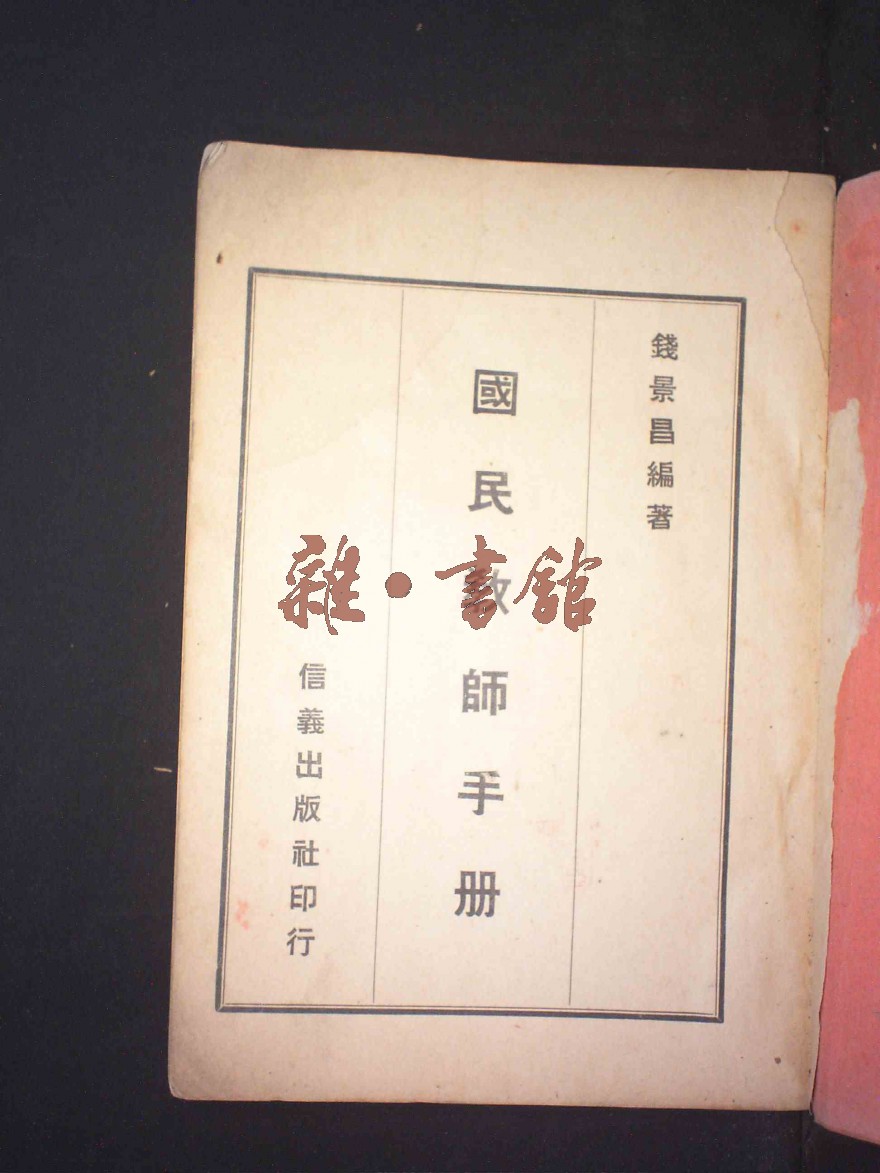 錢景昌編著
國民教師手册
信義出版社印行
雜·書館